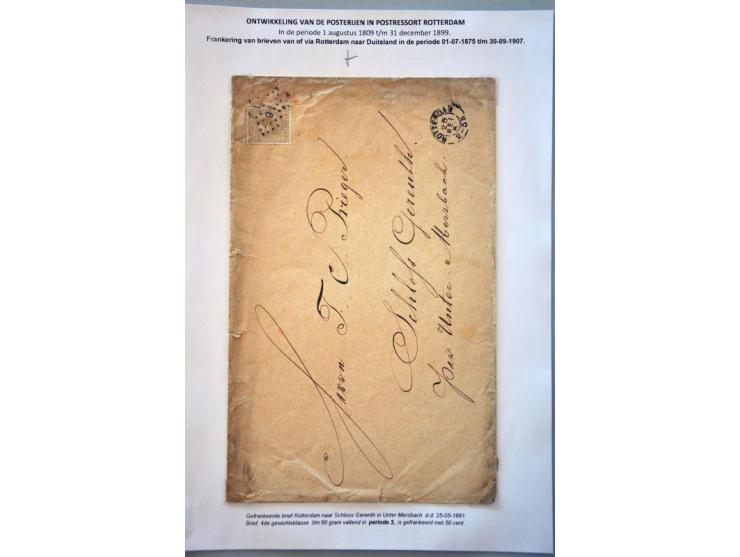 ONTWIKKELING VAN DE POSTERIJEN IN POSTRESSORT ROTTERDAM
In de periode 1 augustus 1809 t/m 31 december 1899.
Frankering van brieven van of via Rotterdam naar Duitsland in de periode 01-07-1875 t/m 30-09-1907.
ROTTERDAM
25
MEI
Herrn T. C. Prieger.
Schloss Gereuth.
per Unter-Merzbach.
Gefrankeerde brief Rotterdam naar Schloss Gerenth in Unter Merzbach d.d. 25-05-1881.
Brief, 4de gewichtsklasse t/m 60 gram vallend in periode 3, is gefrankeerd met 50 cent.